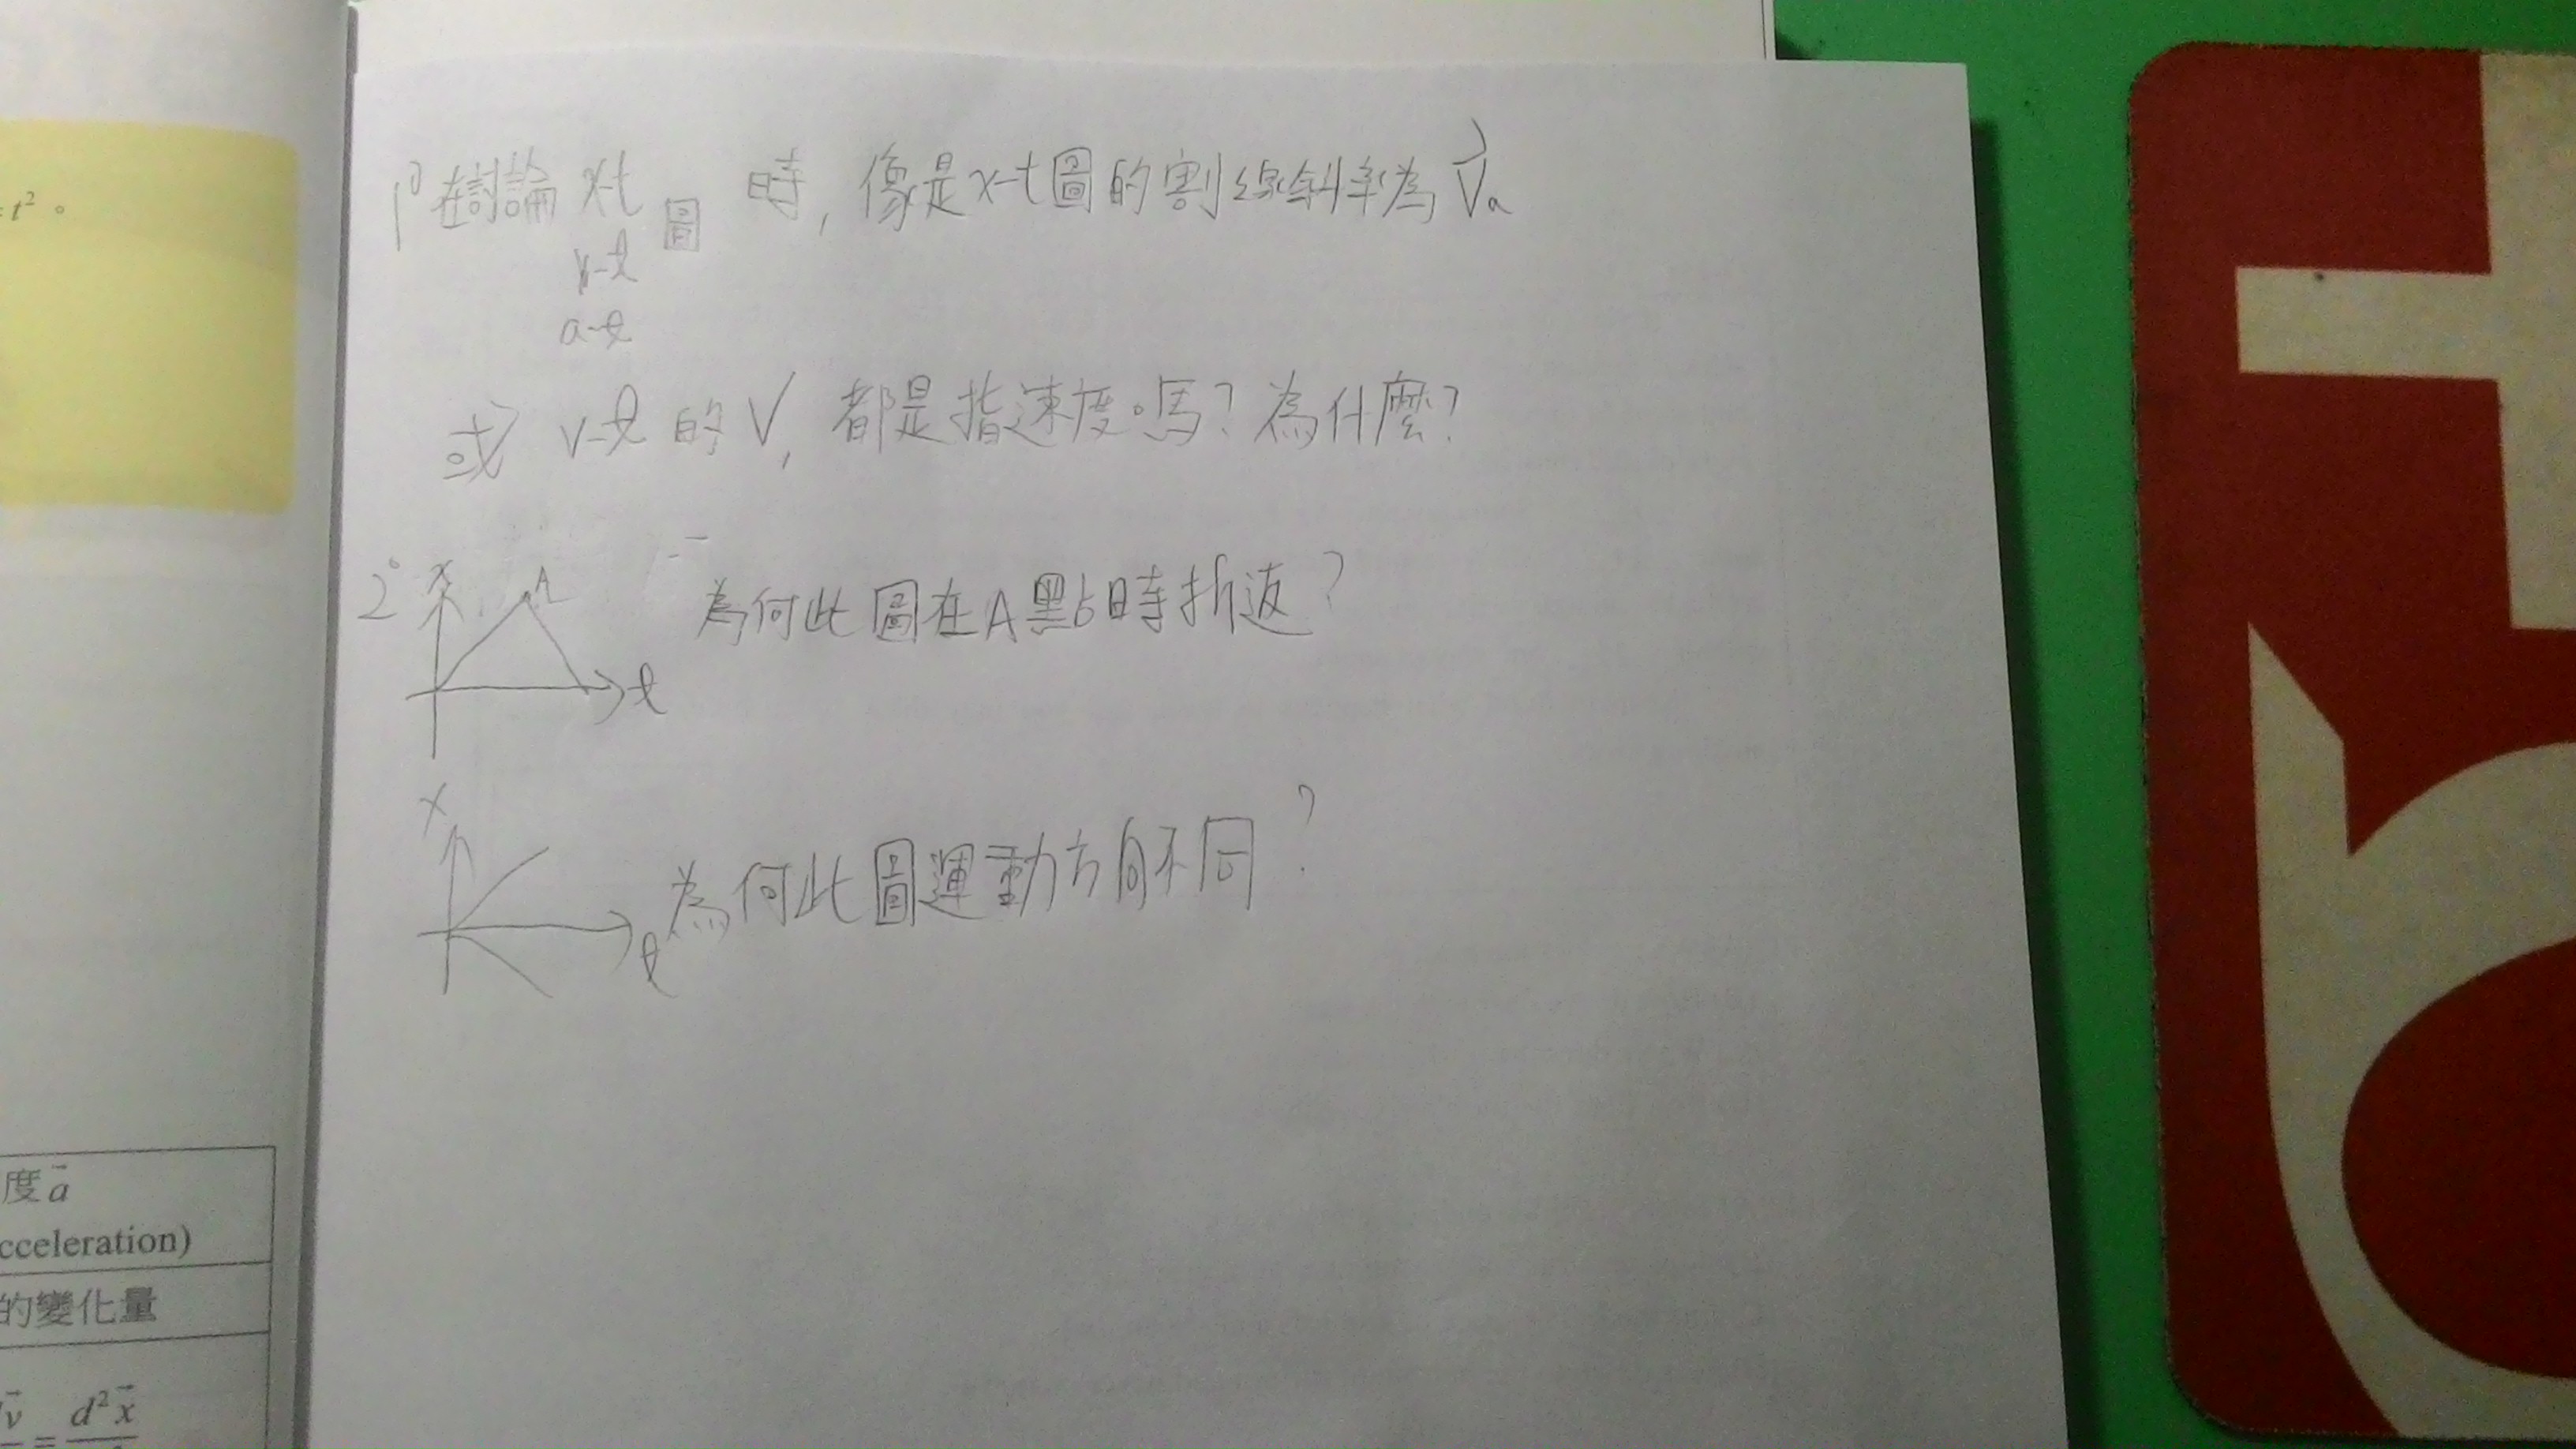 = t² 。
1° 在討論 x-t 圖 時, 像是x-t圖的割線斜率為 v⃗ₐ
v-t
a-t
或 v-t 的 V, 都是指速度嗎? 為什麼?
2° x A 為何此圖在A點時折返?
t
x
為何此圖運動方向不同?
t
度 a⃗
cceleration)
的變化量
v⃗ = d²x⃗